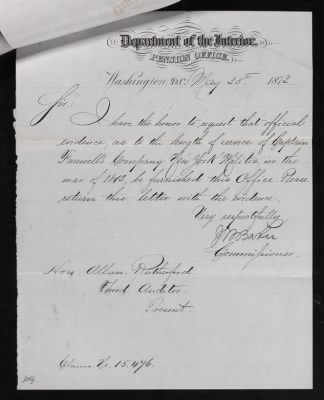 Department of the Interior,
PENSION OFFICE,
Washington, D.C. May 25th 1872
Sir:
I have the honor to request that official
evidence, as to the length of service of Captain
Farwell's Company New York Militia, in the
war of 1812, be furnished this Office. Please
return this letter with the evidence.
Very respectfully
Baker
Commissioner.
Hon. Allan Rutherford
Third Auditor
Present.
Claim No. 15.496.